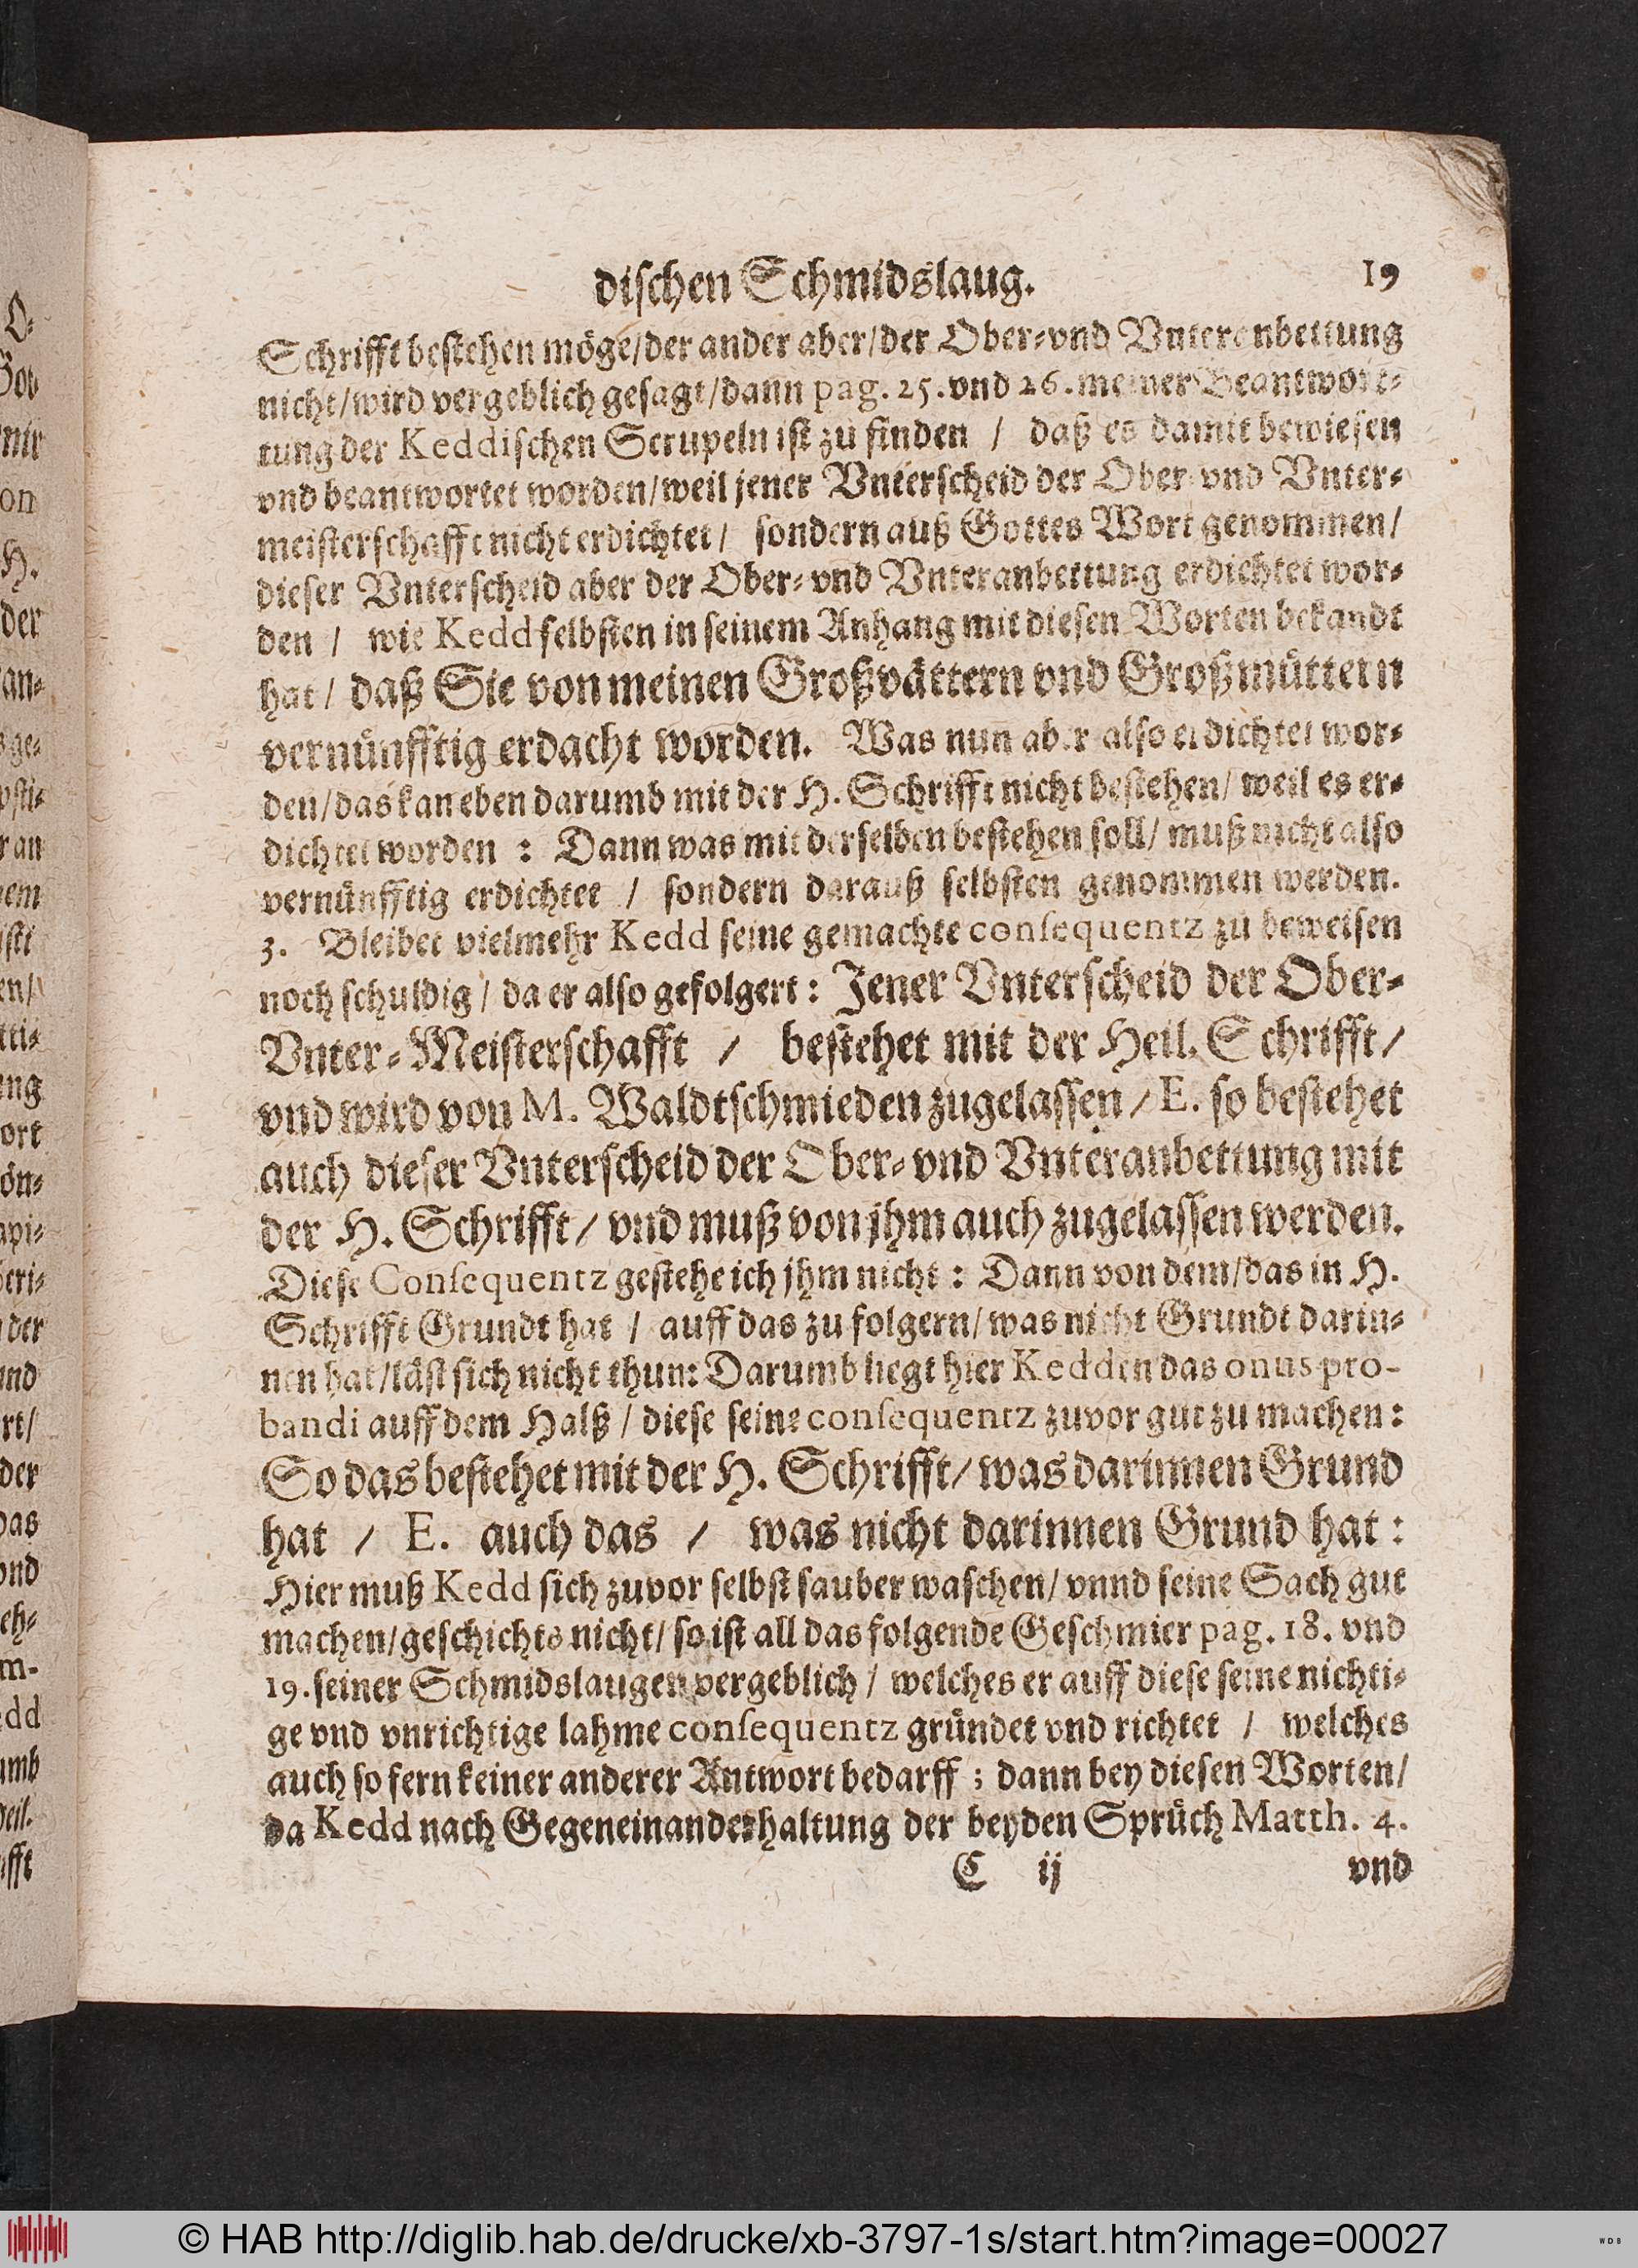 dischen Schmidslaug. 19
Schrifft bestehen möge/der ander aber/der Ober-vnd Vnteranbettung
nicht/wird vergeblich gesagt/dann pag. 25. vnd 26. meiner Beantwor-
tung der Keddischen Scrupeln ist zu finden / daß es damit bewiesen
vnd beantwortet worden/weil jener Vnterscheid der Ober- vnd Vnter-
meisterschafft nicht erdichtet/ sondern auß Gottes Wort genommen/
dieser Vnterscheid aber der Ober- vnd Vnteranbettung erdichtet wor-
den / wie Kedd selbsten in seinem Anhang mit diesen Worten bekandt
hat/ daß Sie von meinen Großvättern vnd Großmüttern
vernünfftig erdacht worden. Was nun aber also erdichtet wor-
den/das kan eben darumb mit der H. Schrifft nicht bestehen/ weil es er-
dichtet worden : Dann was mit derselben bestehen soll/ muß nicht also
vernünfftig erdichtet / sondern darauß selbsten genommen werden.
3. Bleibet vielmehr Kedd seine gemachte consequentz zu beweisen
noch schuldig / da er also gefolgert : Jener Vnterscheid der Ober-
Vnter-Meisterschafft / bestehet mit der Heil. Schrifft/
vnd wird von M. Waldtschmieden zugelassen/ E. so bestehet
auch dieser Vnterscheid der Ober- vnd Vnteranbettung mit
der H. Schrifft/ vnd muß von jhm auch zugelassen werden.
Diese Consequentz gestehe ich jhm nicht : Dann von dem/das in H.
Schrifft Grundt hat / auff das zu folgern/ was nicht Grundt darin-
nen hat/läst sich nicht thun: Darumb liegt hier Kedden das onus pro-
bandi auff dem Halß / diese seine consequentz zuvor gut zu machen:
So das bestehet mit der H. Schrifft/ was darinnen Grund
hat / E. auch das / was nicht darinnen Grund hat :
Hier muß Kedd sich zuvor selbst sauber waschen/ vnnd seine Sach gut
machen/geschichts nicht/ so ist all das folgende Geschmier pag. 18. vnd
19. seiner Schmidslaugen vergeblich / welches er auff diese seine nichti-
ge vnd vnrichtige lahme consequentz gründet vnd richtet / welches
auch so fern keiner anderer Antwort bedarff ; dann bey diesen Worten/
da Kedd nach Gegeneinanderhaltung der beyden Sprüch Matth. 4.
C ij vnd
© HAB http://diglib.hab.de/drucke/xb-3797-1s/start.htm?image=00027